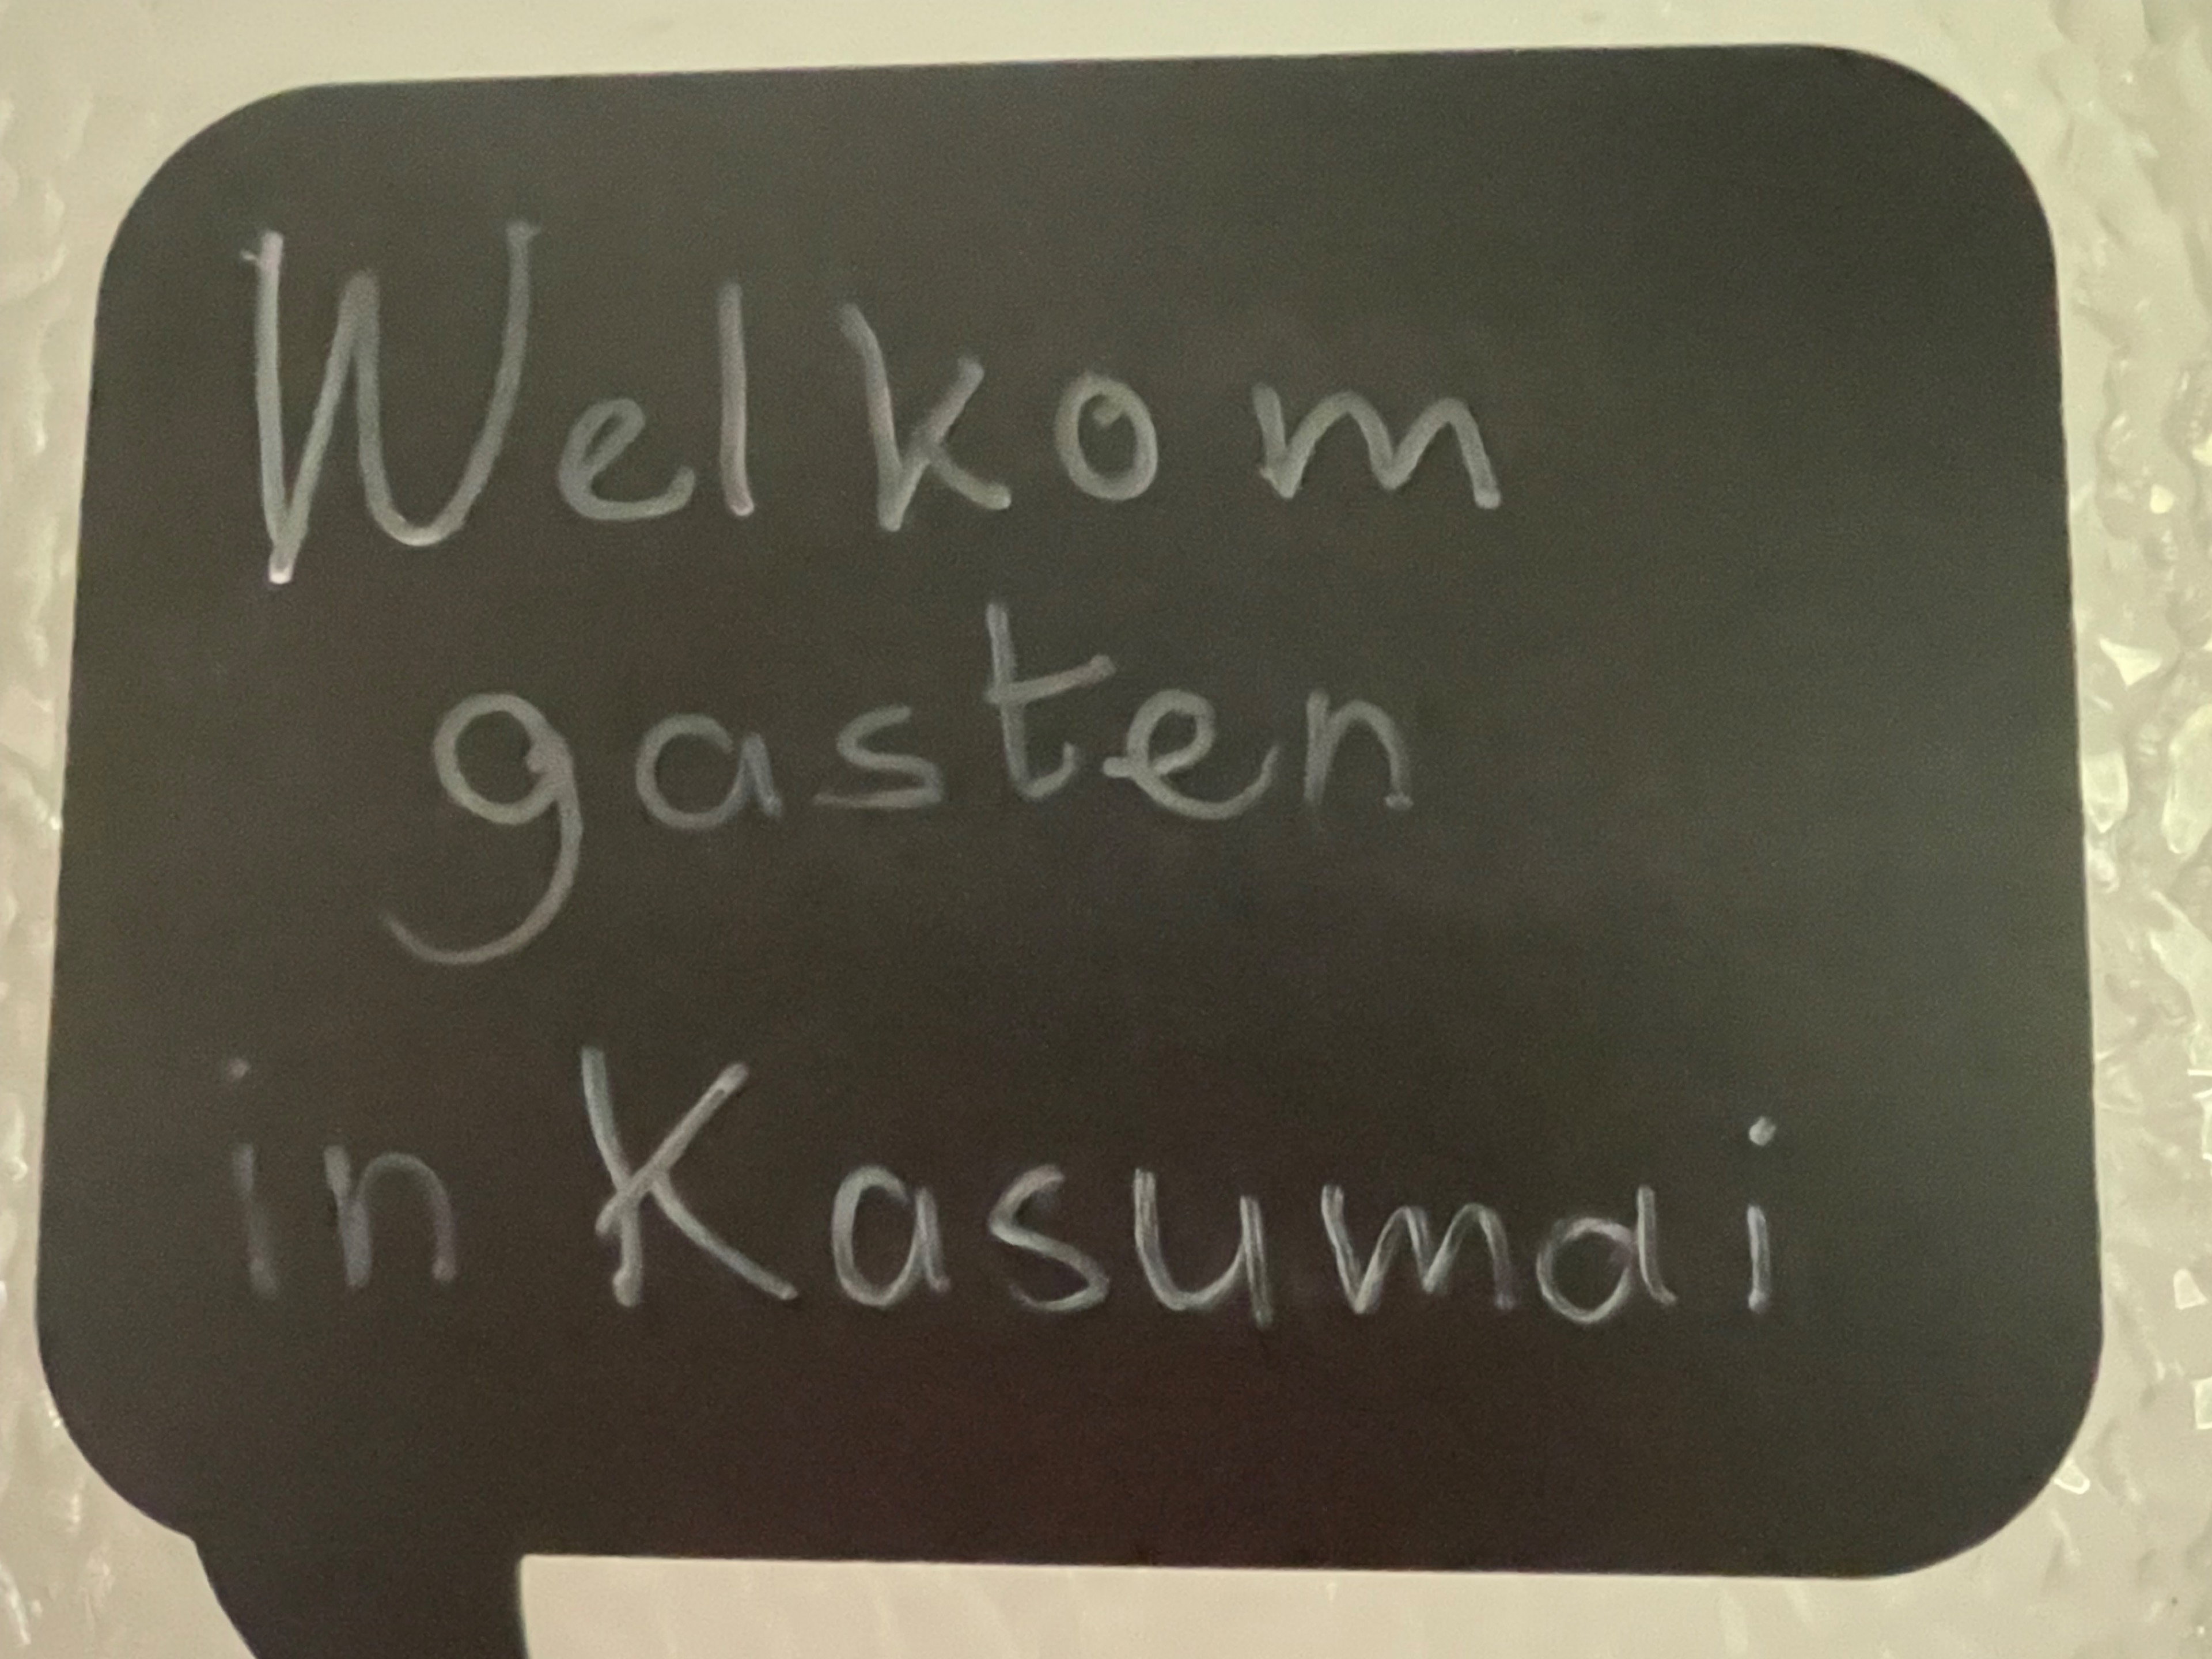 Welkom
gasten
in Kasumai